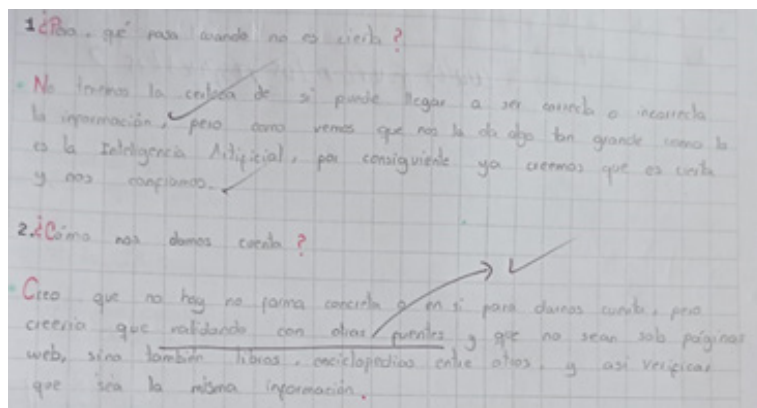 1 ¿Pero, qué pasa cuando no es cierta?
• No tenemos la certeza de si puede llegar a ser correcta o incorrecta
la información, pero como vemos que nos la da algo tan grande como lo
es la Inteligencia Artificial, por consiguiente ya creemos que es cierta
y nos confiamos.
2. ¿Cómo nos damos cuenta?
• Creo que no hay no forma concreta o en si para darnos cuenta, pero
creería que validando con otras fuentes y que no sean solo páginas
web, sino también libros, enciclopedias entre otros, y así verificar
que sea la misma información.